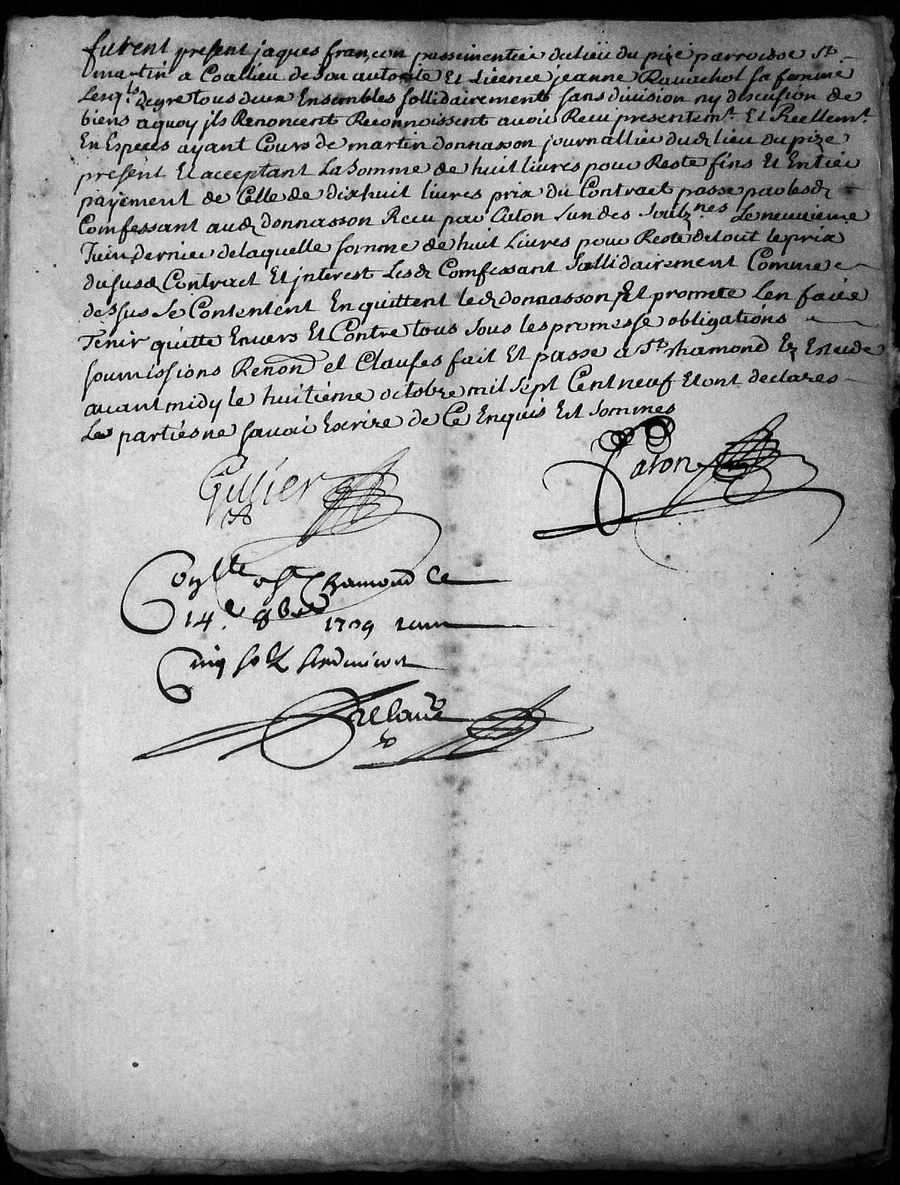 furent present jaques françon passementier du lieu du pize parroisse St
martin a Coallieu de son autorite Et licence jeanne Ravachol sa femme
Lesqls degre tous deux Ensembles sollidairement sans division ny discusion de
biens aquoy jls Renoncent Reconnoissent avoir Recu presentemt Et Reellemt
En Especes ayant Cours de martin donnasson journallier dud lieu du pize
present Et acceptant La somme de huit livres pour Reste fins Et Entier
payement de Celle de dixhuit livres prix du Contract passe par lesd
Comfessant aud donnasson Recu par Caton Lun des Soubznes Le neuvieme
Juin dernier de laquelle somme de huit Livres pour Reste de tout le prix
du susd Contract Et jnterest Lesd Comfessant sollidairement Comme
dessus se Contentent En quittent led donnasson Et promete Len faire
Tenir quitte Envers Et Contre tous sous les promesse obligations
soumissions Renon et Clauses fait Et passe a St Chamond Ez Estude
avant midy le huitième octobre mil sept Cent neuf Et ont declares
Les parties ne savoir Escrire de Ce Enquis Et sommes
Caton
Conlle a St Chamond Ce
14e 8bre 1709
Cinq sols